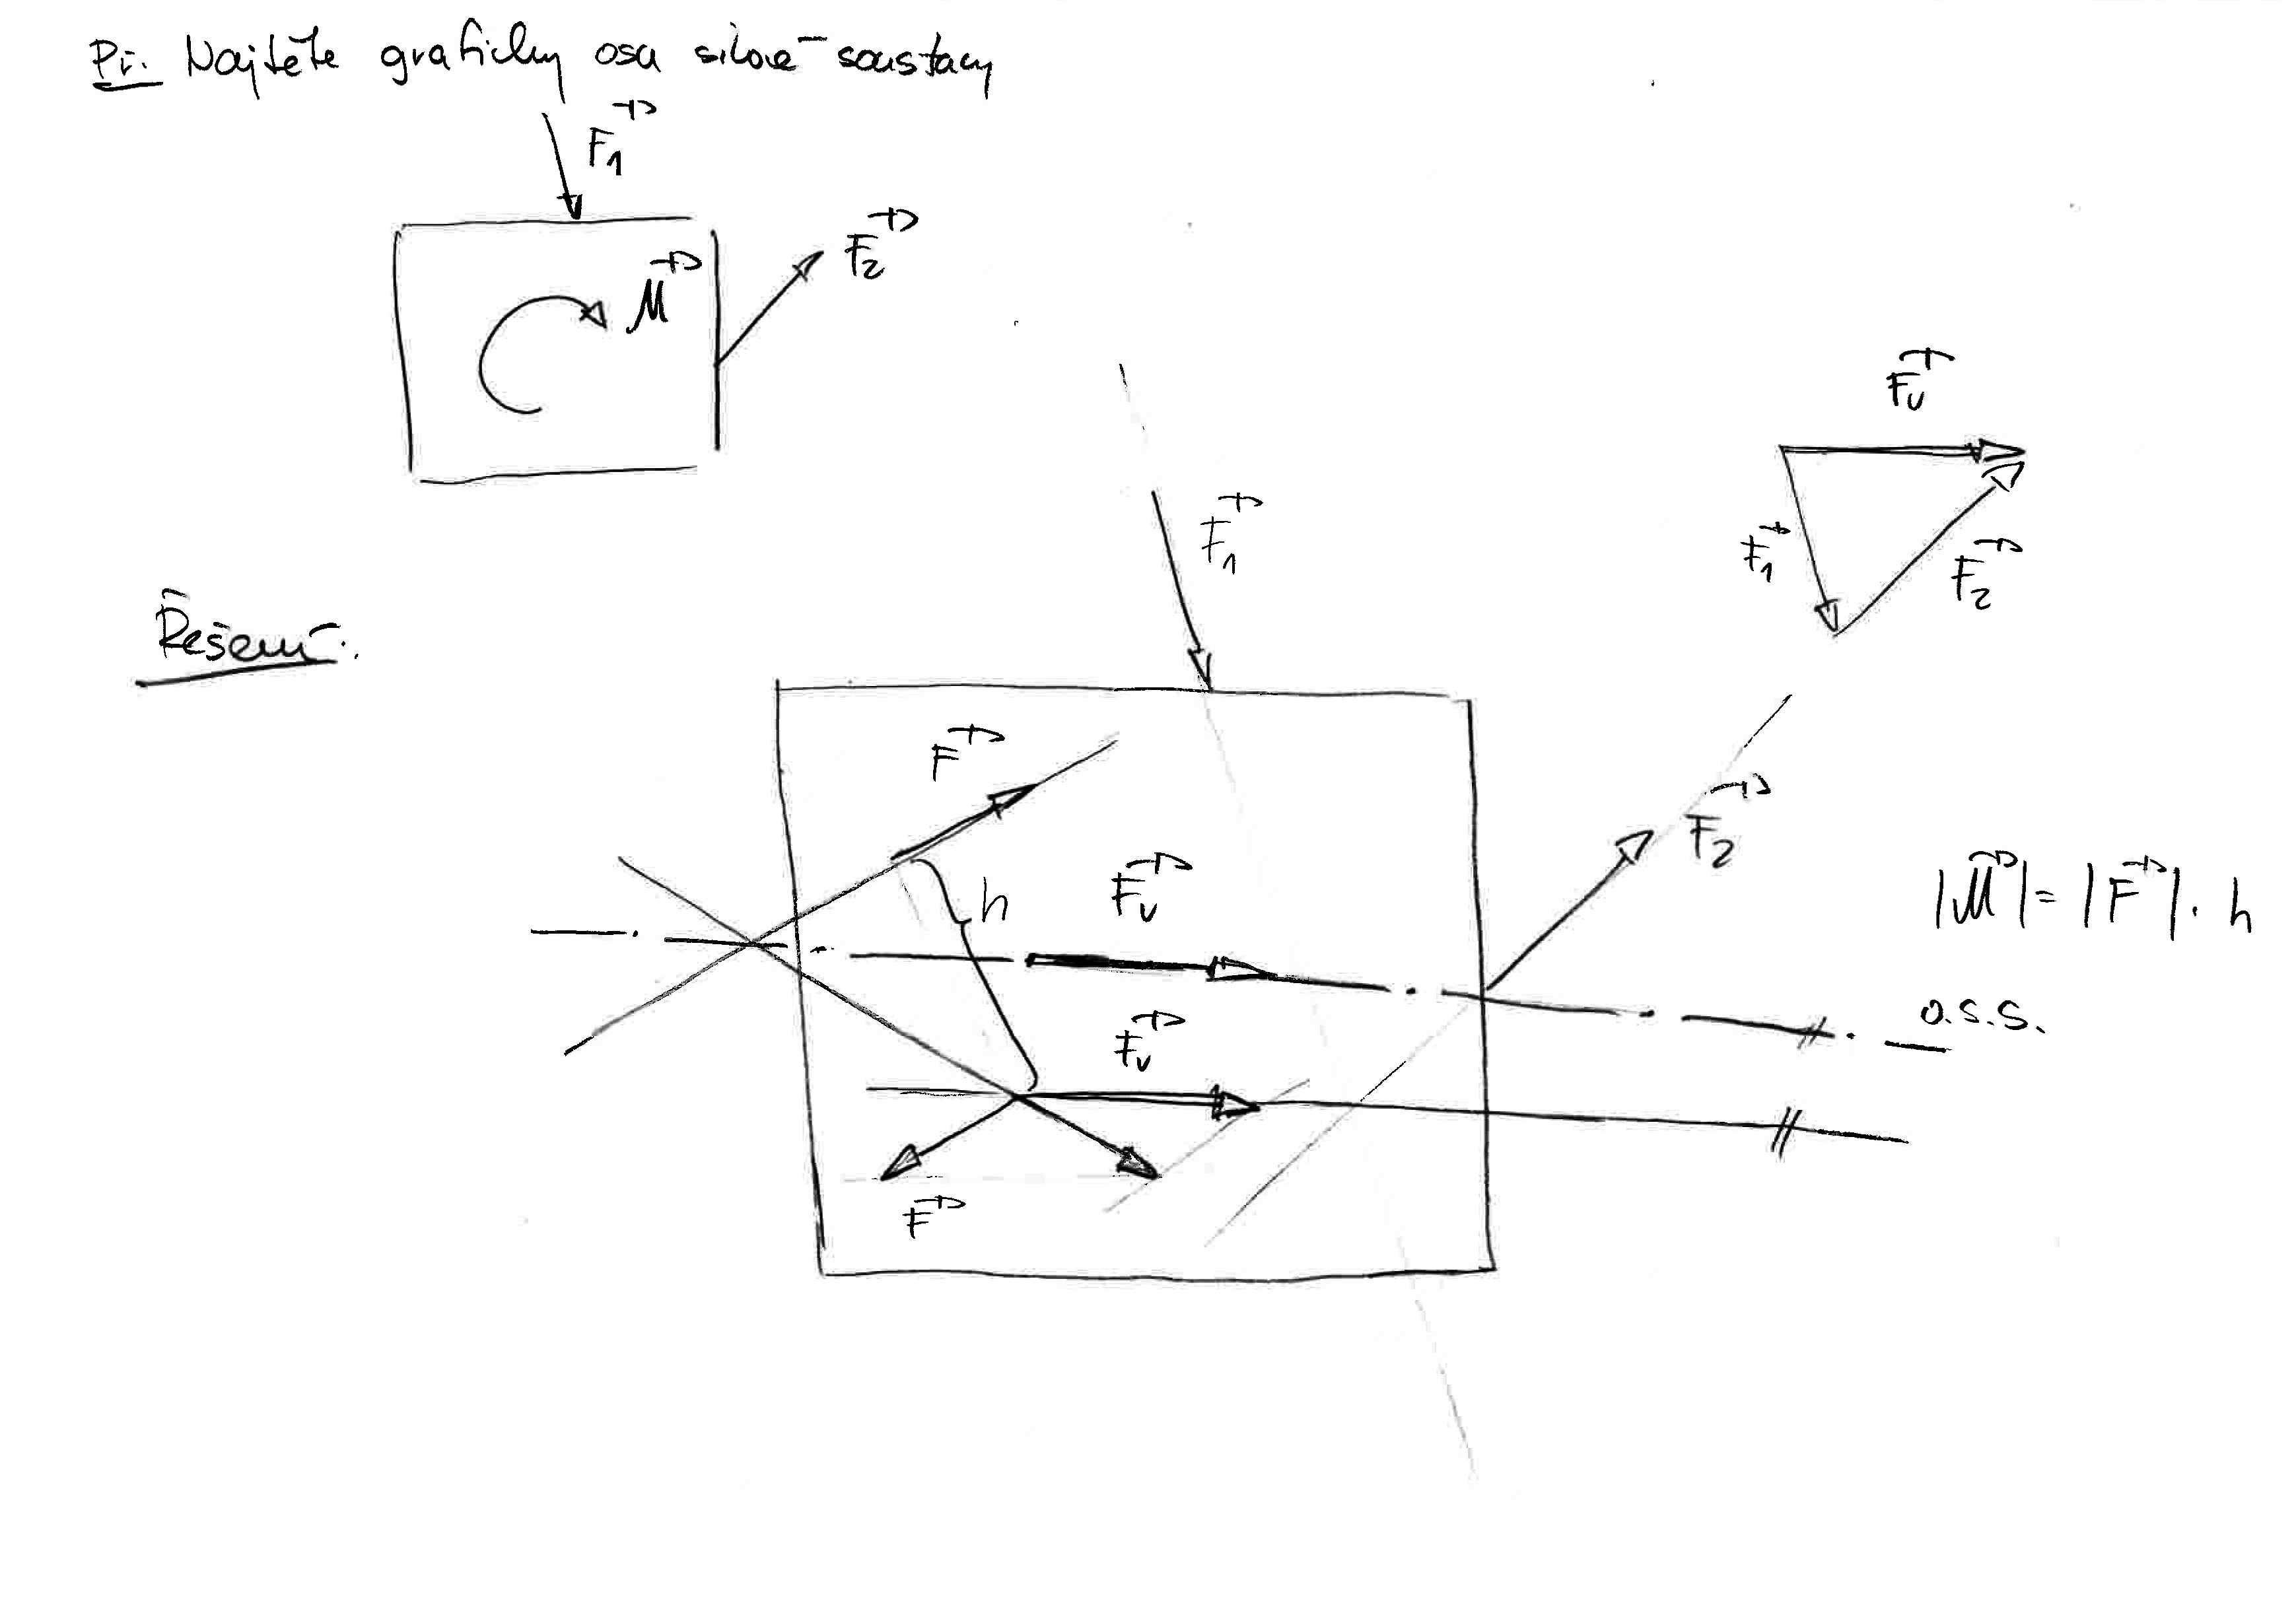 Př. Najděte graficky osu silové soustavy
F₁
F₂
M
Fᵥ
F₁
F₁
F₂
Řešení:
F
F₂
Fᵥ
h
|M| = |F| . h
Fᵥ
o.s.s.
F